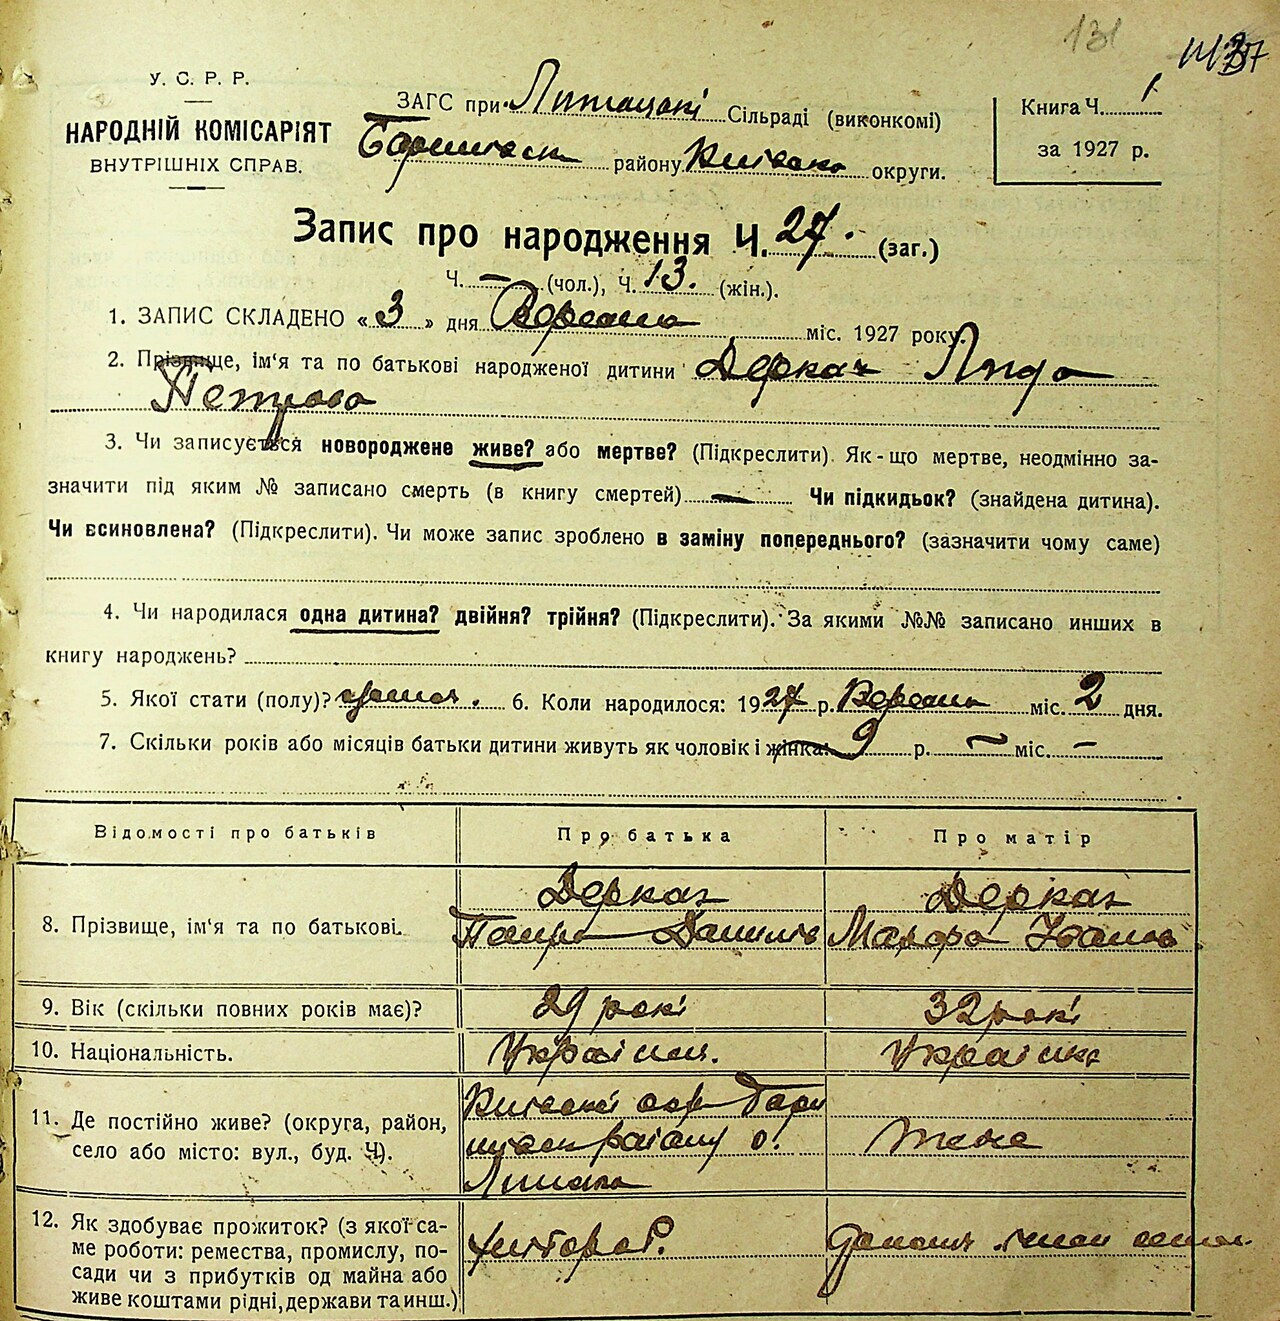 131
У. С. Р. Р.
НАРОДНІЙ КОМІСАРІЯТ
ВНУТРІШНІХ СПРАВ.
ЗАГС при Сільраді (виконкомі)
району округи.
Книга Ч. 1
за 1927 р.
Запис про народження Ч. 27. (заг.)
Ч. — (чол.), Ч. 13. (жін.).
1. ЗАПИС СКЛАДЕНО «3» дня Вересня міс. 1927 року.
2. Прізвище, ім'я та по батькові народженої дитини Деркач Лида
Петрова
3. Чи записується новороджене живе? або мертве? (Підкреслити). Як-що мертве, неодмінно за-
значити під яким № записано смерть (в книгу смертей) — Чи підкидьок? (знайдена дитина).
Чи всиновлена? (Підкреслити). Чи може запис зроблено в заміну попереднього? (зазначити чому саме)
4. Чи народилася одна дитина? двійня? трійня? (Підкреслити). За якими №№ записано инших в
книгу народжень?
5. Якої стати (полу)? 6. Коли народилося: 1927 р. Вересня міс. 2 дня.
7. Скільки років або місяців батьки дитини живуть як чоловік і жінка: 9 р. — міс. —
Відомості про батьків Про батька Про матір
8. Прізвище, ім'я та по батькові.
Деркач
Петро Данилів
Деркач
Іванов
9. Вік (скільки повних років має)? 29 рокі 32 рокі
10. Національність. Украінка
11. Де постійно живе? (округа, район,
село або місто: вул., буд. Ч).
12. Як здобуває прожиток? (з якої са-
ме роботи: ремества, промислу, по-
сади чи з прибутків од майна або
живе коштами рідні, держави та инш.)
хлібороб.